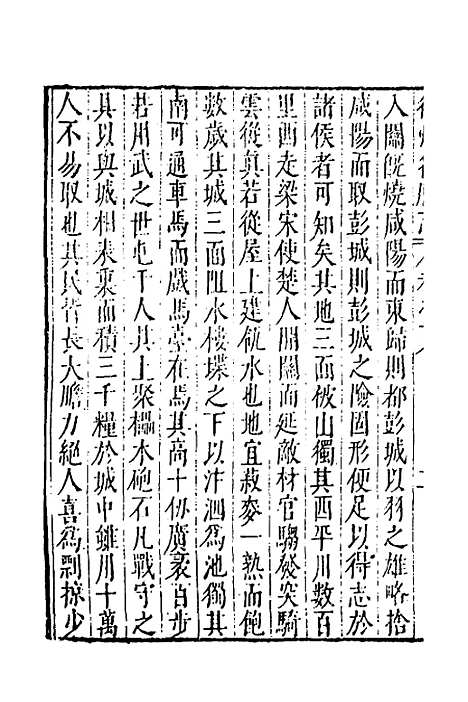 入關既燒咸陽而東歸則都彭城以羽之雄略捨
咸陽而取彭城則彭城之險固形便足以得志於
諸侯者可知矣其地三面被山獨其西平川數百
里西走梁宋使楚人開關而延敵材官騶發突騎
雲從真若從屋上建瓴水也地宜菽麥一熟而飽
數歲其城三面阻水樓堞之下以汴泗爲池獨其
南可通車馬而戲馬臺在焉其高十仞廣袤百步
若用武之世屯千人其上聚櫑木砲石凡戰守之
具以與城相表裏而積三千糧於城中雖用十萬
人不易取也其民皆長大膽力絕人喜爲剽掠少